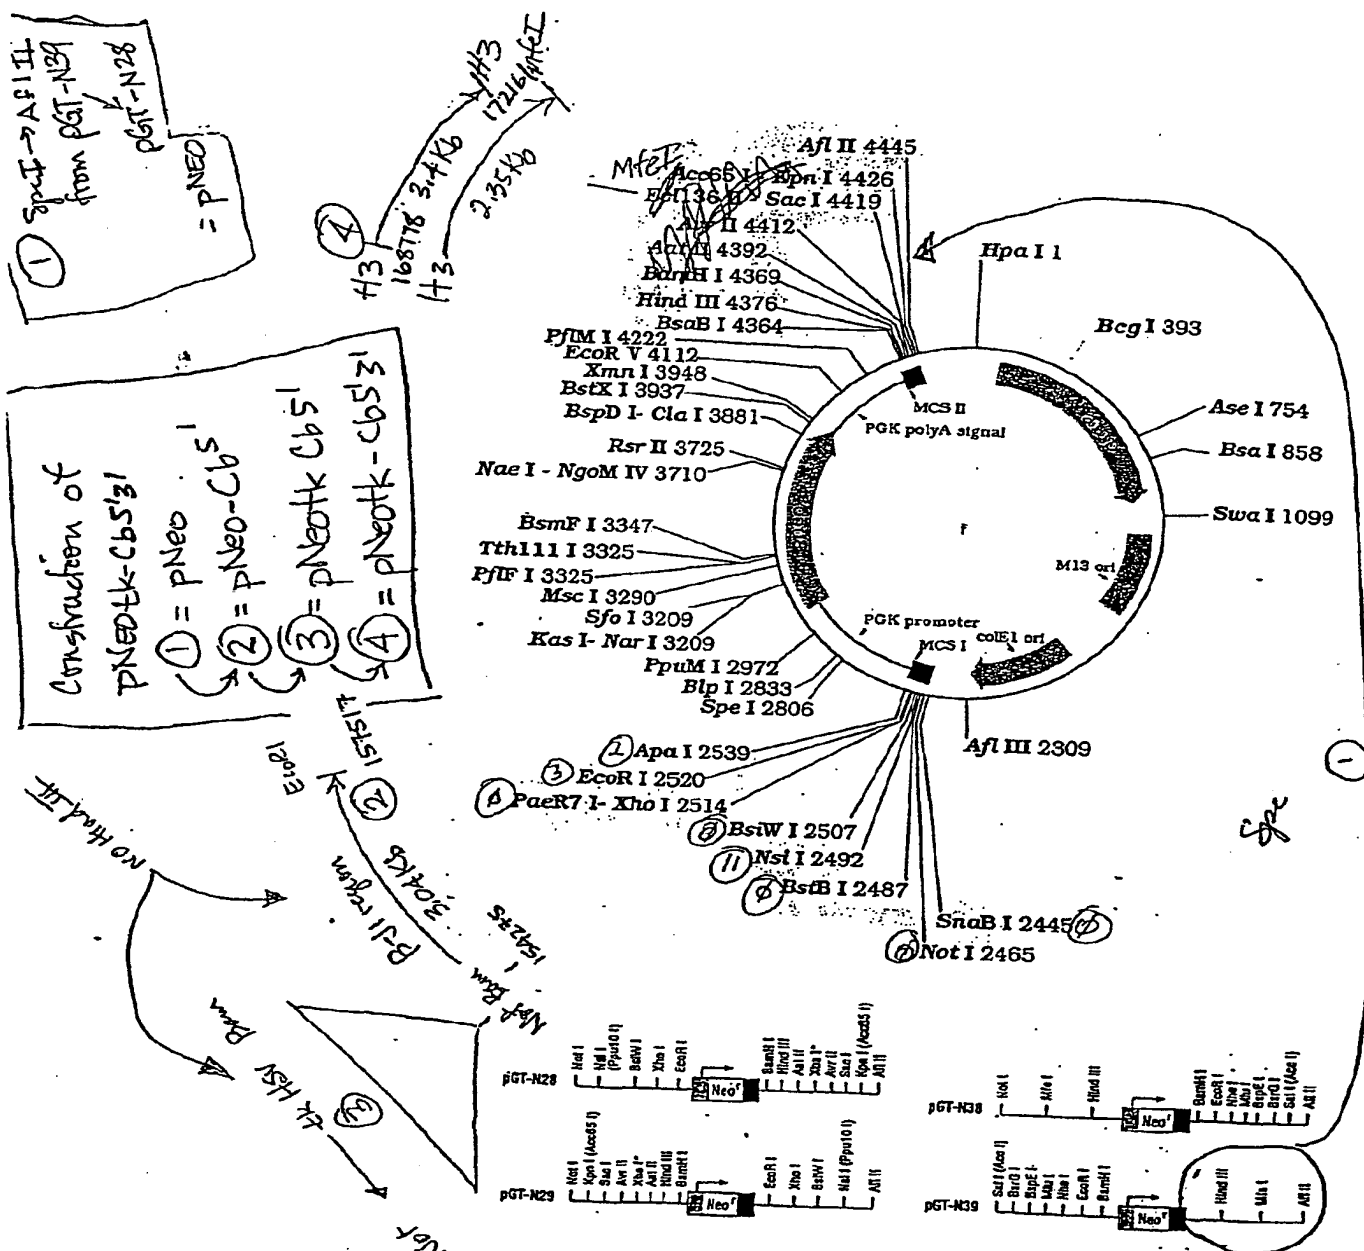 ① SpeI → AflII
from pGT-N39
pGT-N28
= pNEO
Construction of
pNEOtk-Cb5'3'
① = pNeo
② = pNeo-Cb5'
③ = pNeotk Cb5'
④ = pNeotk-Cb5'3'
④
H3
168778
3.4 Kb
H3
H3
2.35Kb
MfeI
MfeI
Afl II 4445
Acc65 I - Kpn I 4426
Ecl136 II - Sac I 4419
Avr II 4412
Aat II 4392
BamH I 4369
Hind III 4376
BsaB I 4364
PflM I 4222
EcoR V 4112
Xmn I 3948
BstX I 3937
BspD I- Cla I 3881
Rsr II 3725
Nae I - NgoM IV 3710
BsmF I 3347
Tth111 I 3325
PflF I 3325
Msc I 3290
Sfo I 3209
Kas I- Nar I 3209
PpuM I 2972
Blp I 2833
Spe I 2806
Apa I 2539
③ EcoR I 2520
PaeR7 I- Xho I 2514
BsiW I 2507
Nsi I 2492
BstB I 2487
SnaB I 2445
Not I 2465
Afl III 2309
Hpa I 1
Bcg I 393
Ase I 754
Bsa I 858
Swa I 1099
MCS II
PGK polyA signal
M13 ori
PGK promoter
colE1 ori
MCS I
①
Spe
EcoRI
157517
②
3.04Kb
β-JI region
154275
Bam
NotI
NO Hind III
Bam
tk HSV
③
Not
pGT-N28
Not I
Nsi I (Ppu10 I)
BsiW I
Xho I
EcoR I
Neoʳ
BamH I
Hind III
Aat II
Xba I*
Avr II
Sac I
Kpn I (Acc65 I)
Afl II
pGT-N29
Not I
Kpn I (Acc65 I)
Sac I
Avr II
Xba I*
Aat II
Hind III
BamH I
Neoʳ
EcoR I
Xho I
BsiW I
Nsi I (Ppu10 I)
Afl II
pGT-N38
Not I
Mfe I
Hind III
Neoʳ
BamH I
EcoR I
Nhe I
Mlu I
BspE I
BsrG I
Sal I (Acc I)
Afl II
pGT-N39
Sal I (Acc I)
BsrG I
BspE I
Mlu I
Nhe I
EcoR I
BamH I
Neoʳ
Hind III
Mfe I
Afl II